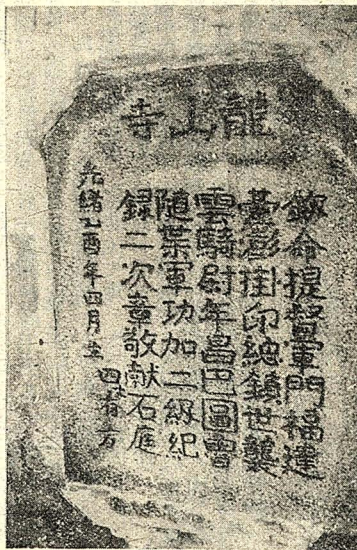 龍山寺
欽命提督軍門福建
臺澎掛印總鎮世襲
雲騎尉年昌巴圖魯
隨帶軍功加二級紀
錄二次章敬獻石庭
光緒乙酉年四月立 四方